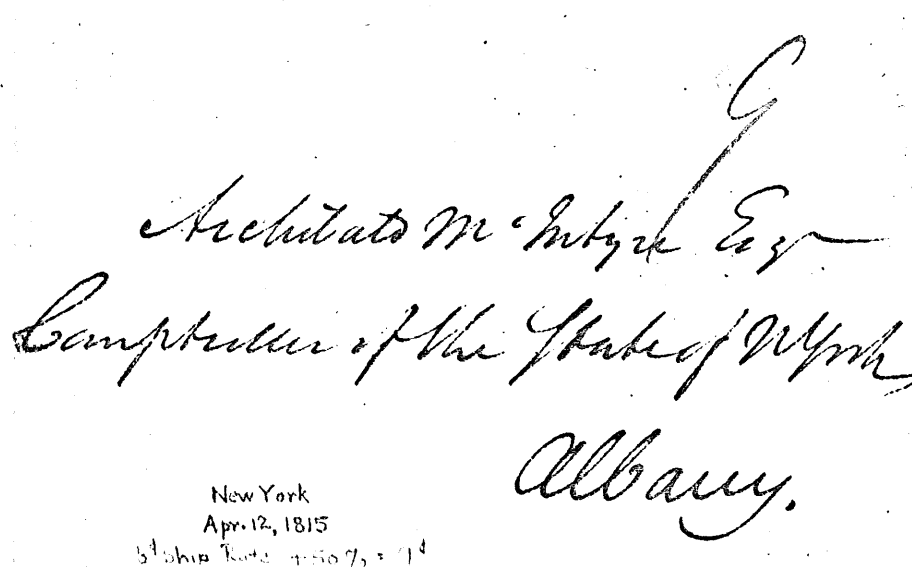 9
Archibald McIntyre Esqr
Comptroller of the State of NYork
Albany.
New York
Apr. 12, 1815
6d Ship Rate + 50% = 9d